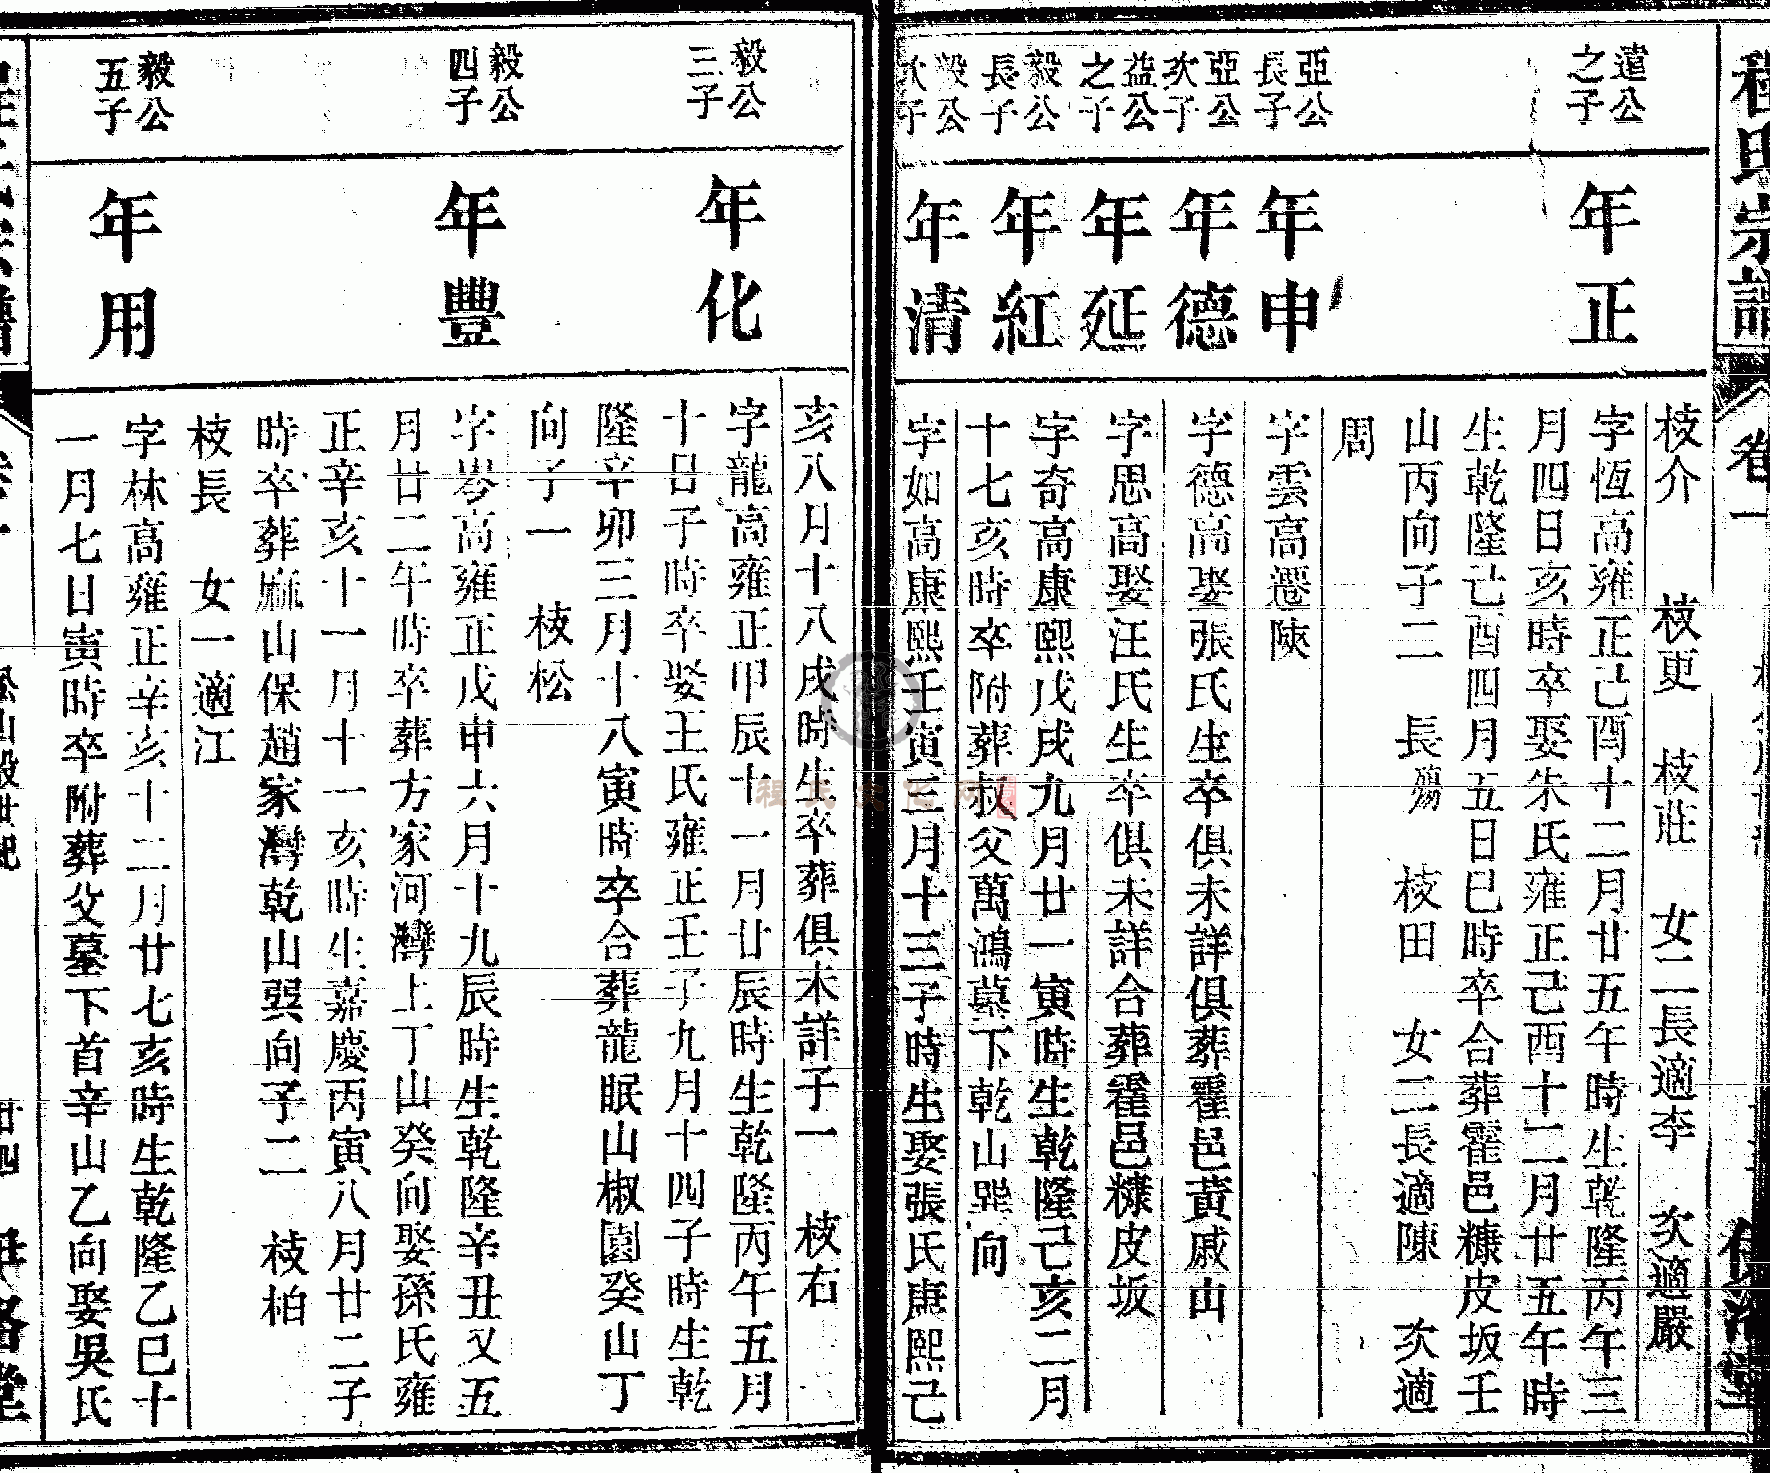 程氏宗譜
卷一
枝介 枝更 枝莊 女二長適李 次適嚴
遣公之子
年正
字恆高雍正己酉十二月廿五午時生乾隆丙午三
月四日亥時卒娶朱氏雍正己酉十二月廿五午時
生乾隆己酉四月五日巳時卒合葬霍邑糠皮坂壬
山丙向子二 長殤 枝田 女二長適陳 次適
周
亞公長子
年申
字雲高遷陝
亞公次子
年德
字德高娶張氏生卒俱未詳俱葬霍邑黃戚山
益公之子
年延
字思高娶汪氏生卒俱未詳合葬霍邑糠皮坂
毅公長子
年紅
字奇高康熙戊戌九月廿一寅時生乾隆己亥二月
十七亥時卒附葬叔父萬鴻墓下乾山巽向
毅公次子
年清
字如高康熙壬寅三月十三子時生娶張氏康熙己
亥八月十八戌時生卒葬俱未詳子一 枝右
毅公三子
年化
字龍高雍正甲辰十一月廿辰時生乾隆丙午五月
十日子時卒娶王氏雍正壬子九月十四子時生乾
隆辛卯三月十八寅時卒合葬龍眠山椒園癸山丁
向子一 枝松
毅公四子
年豐
字岑高雍正戊申六月十九辰時生乾隆辛丑又五
月廿二午時卒葬方家河灣上丁山癸向娶孫氏雍
正辛亥十一月十一亥時生嘉慶丙寅八月廿二子
時卒葬麻山保趙家灣乾山巽向子二 枝柏
枝長 女一適江
毅公五子
年用
字林高雍正辛亥十二月廿七亥時生乾隆乙巳十
一月七日寅時卒附葬父墓下首辛山乙向娶吳氏